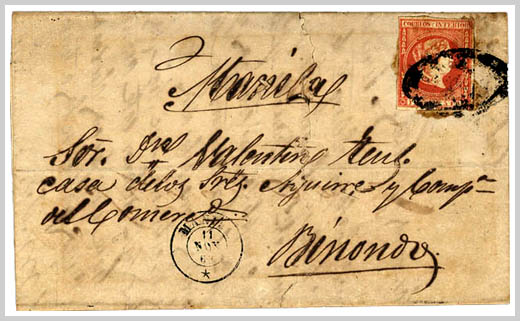 CORREOS INTERIOR
Manila
Sor. Dn Valentin Teul.
casa de los Sres Aguirre y Compa
del Comercio.
MANILA
17
NOV
Binondo